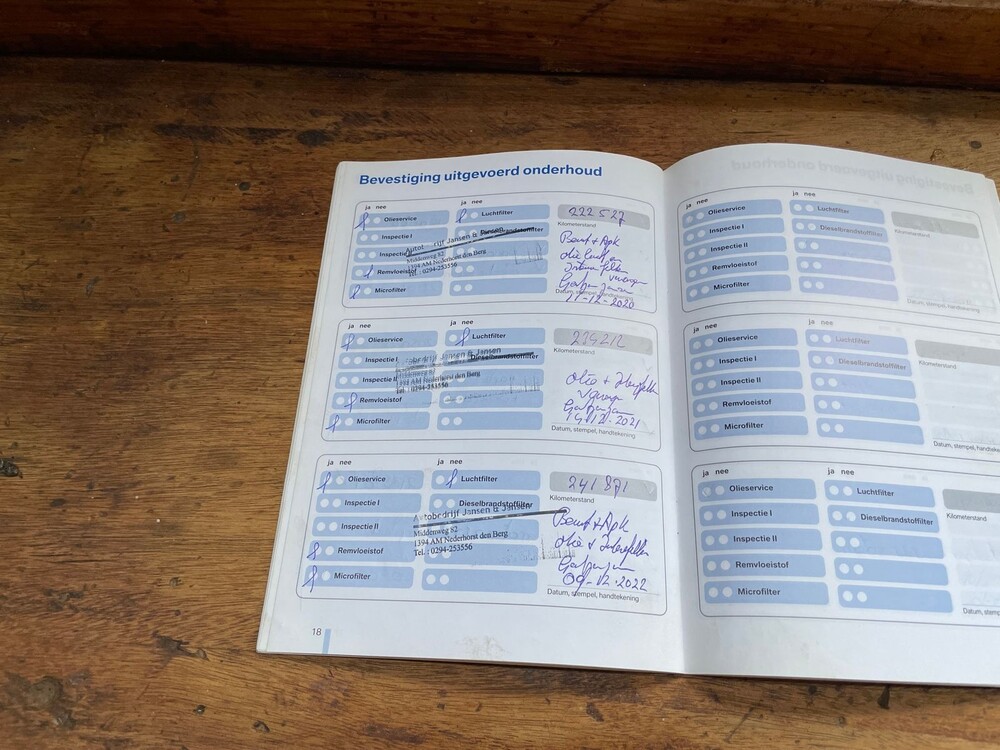 Bevestiging uitgevoerd onderhoud
ja nee
ja nee
Olieservice
Luchtfilter
222 527
Kilometerstand
Inspectie I
Dieselbrandstoffilter
Jansen & Jansen
Middenweg 82
1394 AM Nederhorst den Berg
Tel. : 0294-253556
Remvloeistof
Microfilter
Beurt + Apk
Datum, stempel, handtekening
11-12-2020
ja nee
ja nee
Olieservice
Luchtfilter
Kilometerstand
Inspectie I
Dieselbrandstoffilter
Inspectie II
Autobedrijf Jansen & Jansen
Middenweg 82
1394 AM Nederhorst den Berg
Tel. : 0294-253556
Remvloeistof
Microfilter
Olie +
2021
Datum, stempel, handtekening
ja nee
ja nee
Olieservice
Luchtfilter
241 871
Kilometerstand
Inspectie I
Dieselbrandstoffilter
Inspectie II
Autobedrijf Jansen & Jansen
Middenweg 82
1394 AM Nederhorst den Berg
Tel. : 0294-253556
Remvloeistof
Microfilter
Beurt + Apk
olie +
09-12-2022
Datum, stempel, handtekening
18
ja nee
ja nee
Olieservice
Luchtfilter
Kilometerstand
Inspectie I
Dieselbrandstoffilter
Inspectie II
Remvloeistof
Microfilter
Datum, stempel,
ja nee
ja nee
Olieservice
Luchtfilter
Kilometerstand
Inspectie I
Dieselbrandstoffilter
Inspectie II
Remvloeistof
Microfilter
Datum, stempel,
ja nee
ja nee
Olieservice
Luchtfilter
Kilometerstand
Inspectie I
Dieselbrandstoffilter
Inspectie II
Remvloeistof
Microfilter
Datum,